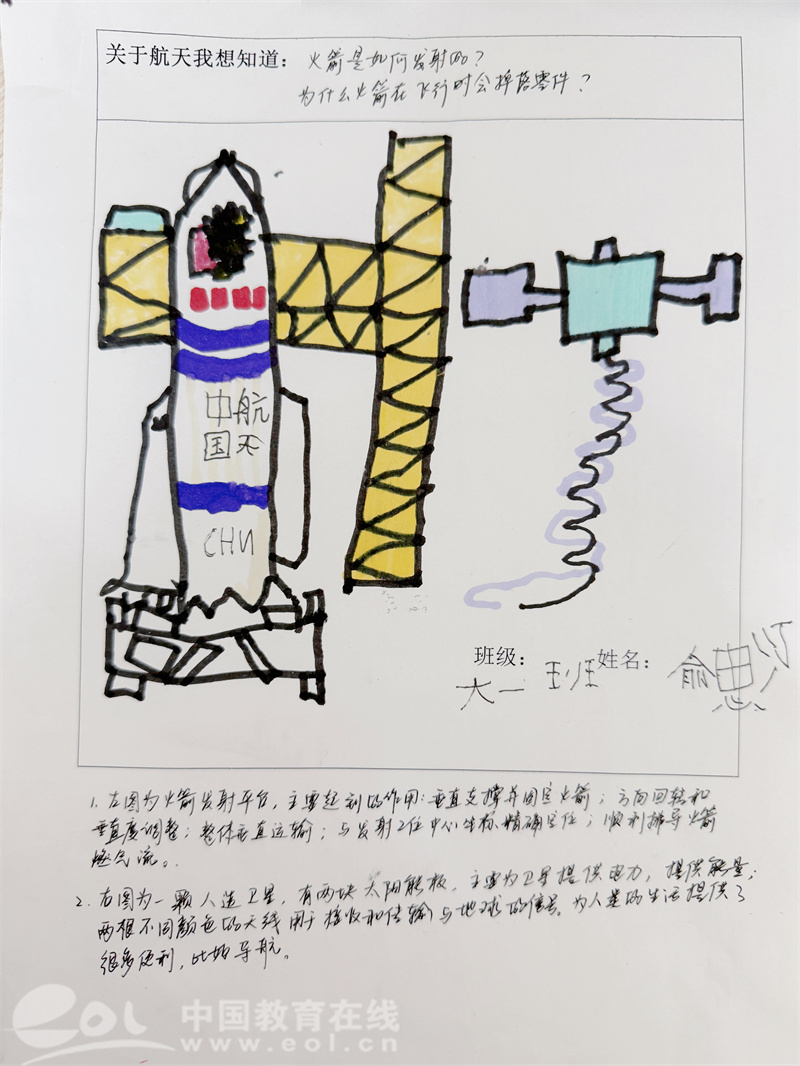 关于航天我想知道：火箭是如何发射的？
为什么火箭在飞行时会掉落零件？
中航
国天
CHN
班级：大一班 姓名：俞思
1. 左图为火箭发射平台，主要起到的作用：垂直支撑并固定火箭；方向回转和
垂直度调整；整体垂直运输；与发射工位中心坐标精确定位；顺利排导火箭
燃气流。
2. 右图为一颗人造卫星，有两块太阳能板，主要为卫星提供电力，提供能量；
两根不同颜色的天线用于接收和传输与地球的信号。为人类的生活提供了
很多便利，比如导航。
eol 中国教育在线
www.eol.cn